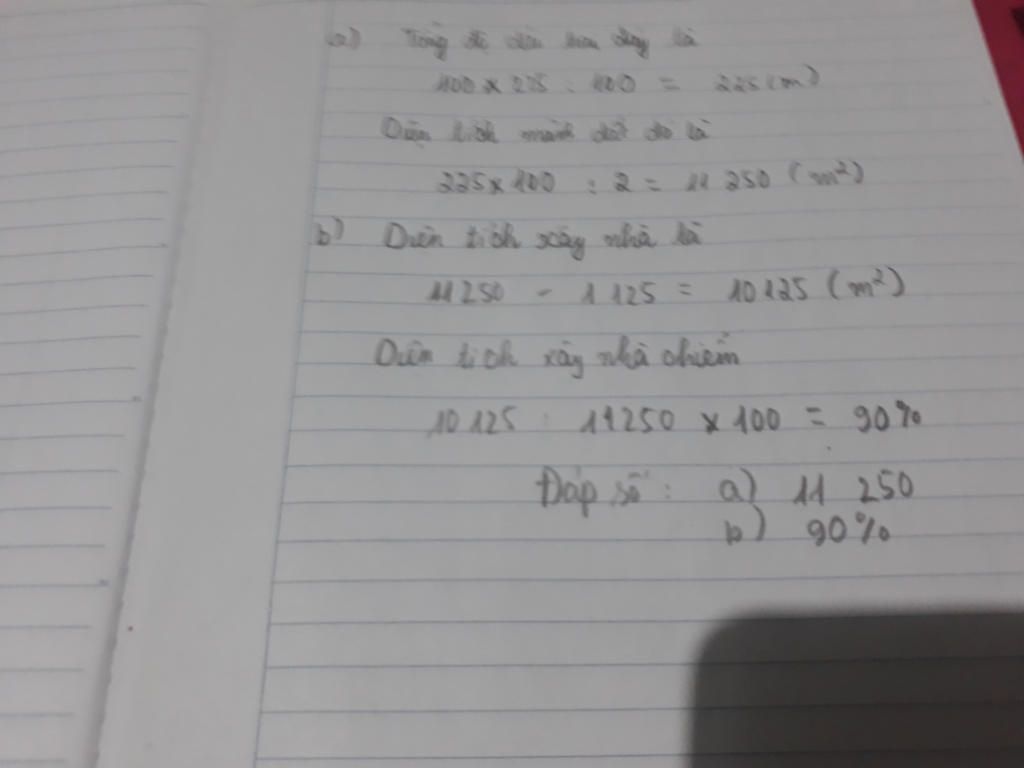 a) Tổng độ dài hai đáy là
100 x 225 : 100 = 225 (m)
Diện tích mảnh đất đó là
225 x 100 : 2 = 11 250 (m²)
b) Diện tích xây nhà là
11 250 - 1 125 = 10 125 (m²)
Diện tích xây nhà chiếm
10 125 : 11 250 x 100 = 90%
Đáp số : a) 11 250
b) 90%